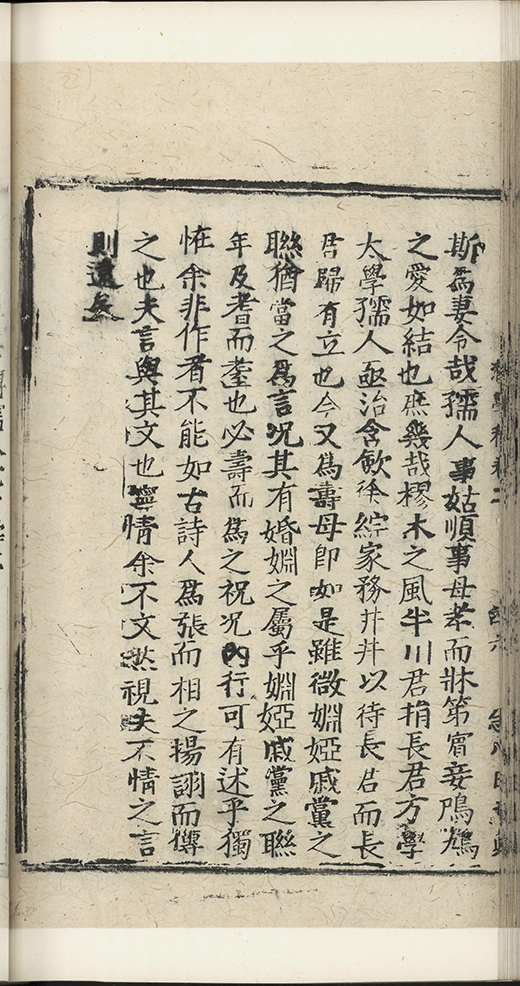 斯爲妻令哉孺人事姑順事母孝而牀第賓妾鳲鳩
之愛如結也庶幾哉樛木之風半川君捐長君方學
太學孺人亟治含歛徐綜家務井井以待長君而長
君歸有立也今又爲壽母即如是雖微婣婭戚黨之
聯猶當之爲言况其有婚婣之屬乎婣婭戚黨之聯
年及耆而耋也必壽而爲之祝况內行可有述乎獨
恠余非作者不能如古詩人爲張而相之揚詡而傳
之也夫言與其文也寧情余不文然視夫不情之言
則遠矣